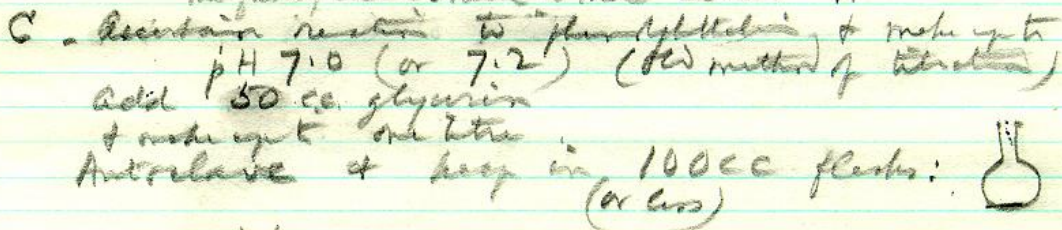 C - Ascertain reaction to phenolphthalein & make up to
pH 7.0 (or 7.2) (old method of titration)
add 50 cc. glycerin
& make up to one litre.
Autoclave & keep in 100cc flasks:
(or less)